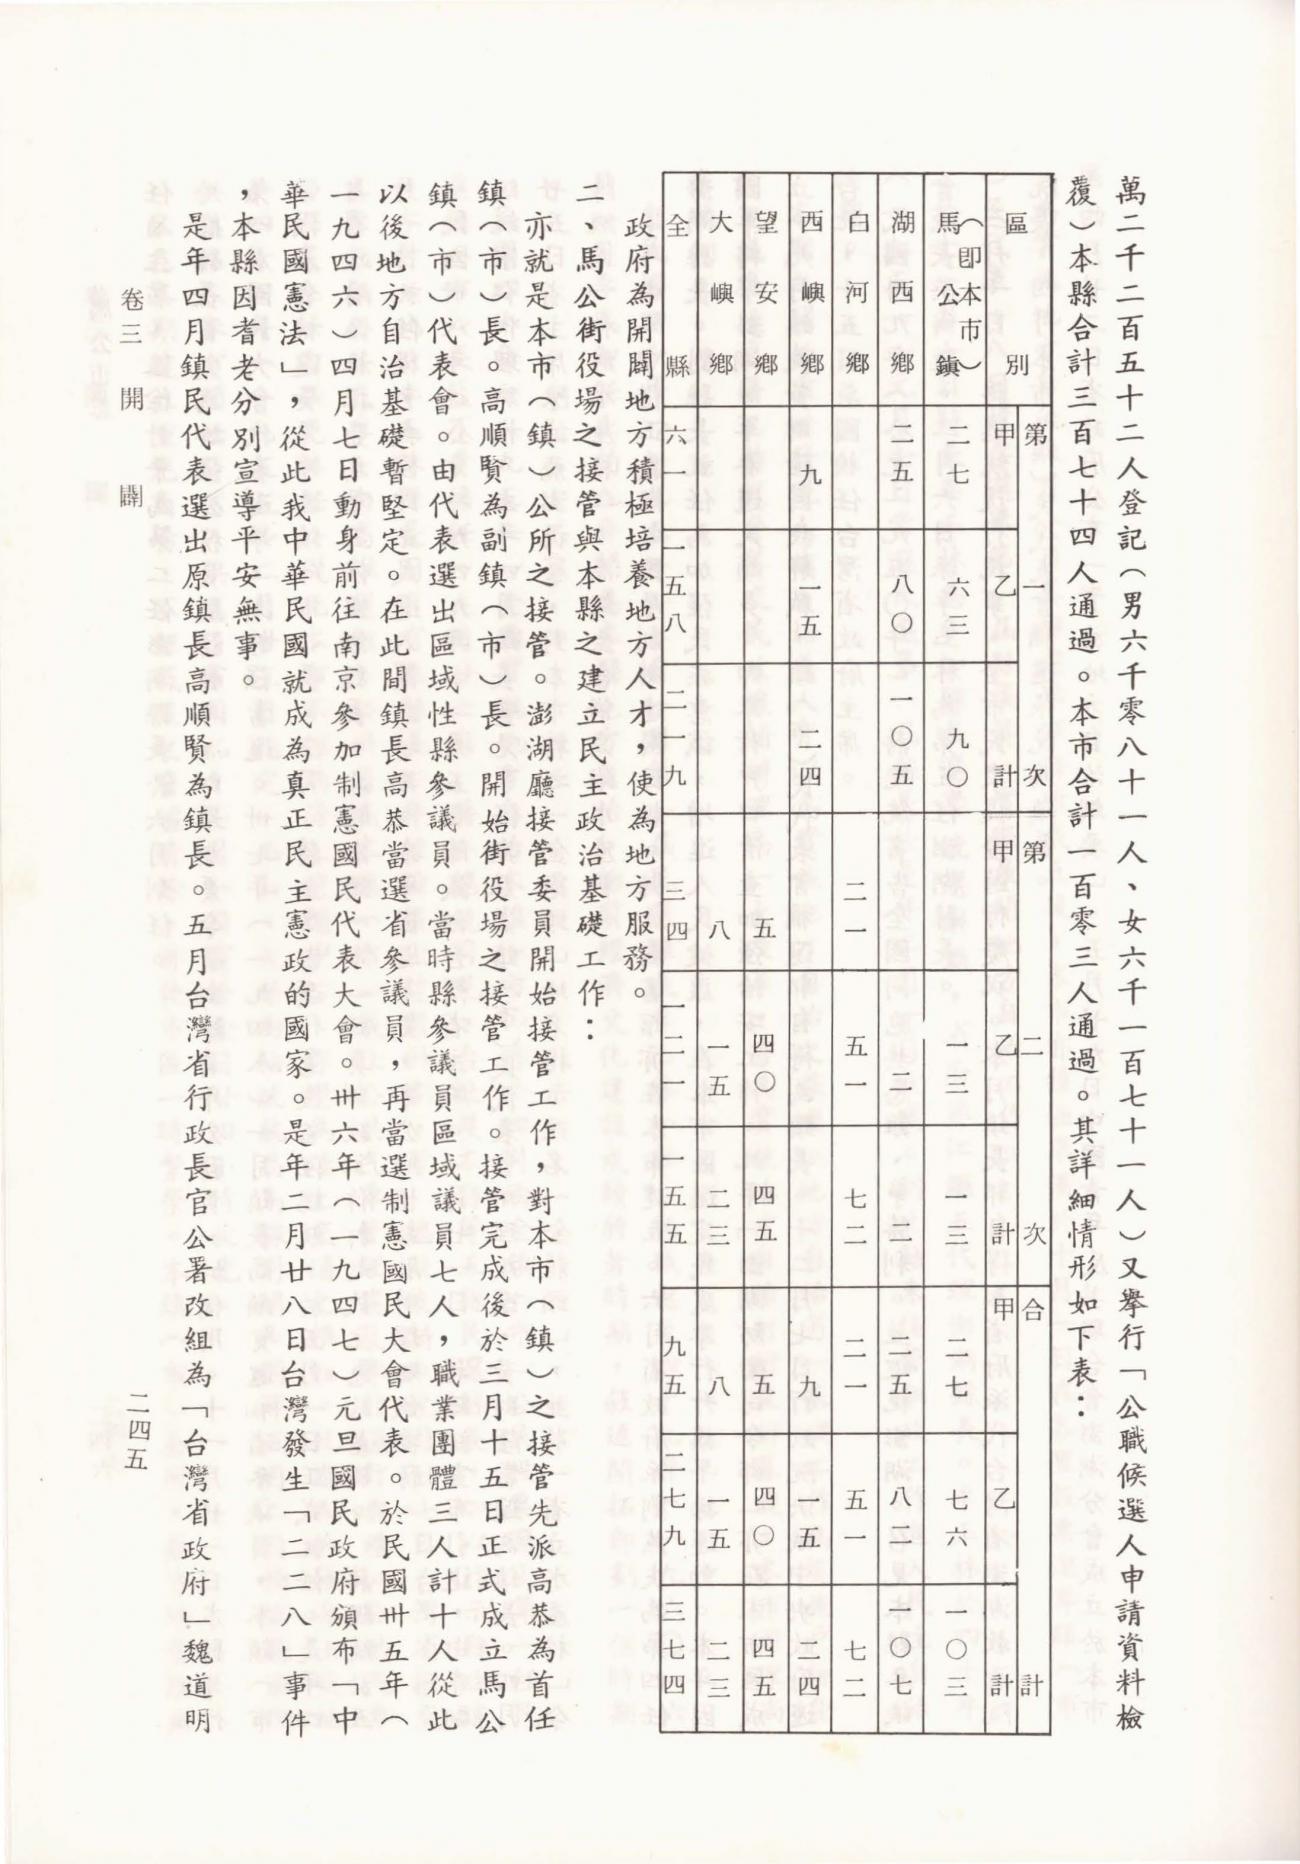 萬二千二百五十二人登記（男六千零八十一人、女六千一百七十一人）又舉行「公職候選人申請資料檢
覆）本縣合計三百七十四人通過。本市合計一百零三人通過。其詳細情形如下表：
區別 第一次 第二次 合計
甲 乙 計 甲 乙 計 甲 乙 計
馬公鎮（即本市） 二七 六三 九〇 一三 一三 二七 七六 一〇三
湖西鄉 二五 八〇 一〇五 二 二 二五 八二 一〇七
白河鄉 二一 五一 七二 二一 五一 七二
西嶼鄉 九 一五 二四 九 一五 二四
望安鄉 五 四〇 四五 五 四〇 四五
大嶼鄉 八 一五 二三 八 一五 二三
全縣 六一 一五八 二一九 三四 一二一 一五五 九五 二七九 三七四
政府為開闢地方積極培養地方人才，使為地方服務。
二、馬公街役場之接管與本縣之建立民主政治基礎工作：
亦就是本市（鎮）公所之接管。澎湖廳接管委員開始接管工作，對本市（鎮）之接管先派高恭為首任
鎮（市）長。高順賢為副鎮（市）長。開始街役場之接管工作。接管完成後於三月十五日正式成立馬公
鎮（市）代表會。由代表選出區域性縣參議員。當時縣參議員區域議員七人，職業團體三人計十人從此
以後地方自治基礎暫堅定。在此間鎮長高恭當選省參議員，再當選制憲國民大會代表。於民國卅五年（
一九四六）四月七日動身前往南京參加制憲國民代表大會。卅六年（一九四七）元旦國民政府頒布「中
華民國憲法」，從此我中華民國就成為真正民主憲政的國家。是年二月廿八日台灣發生「二二八」事件
，本縣因耆老分別宣導平安無事。
是年四月鎮民代表選出原鎮長高順賢為鎮長。五月台灣省行政長官公署改組為「台灣省政府」魏道明
卷三 開闢
二四五